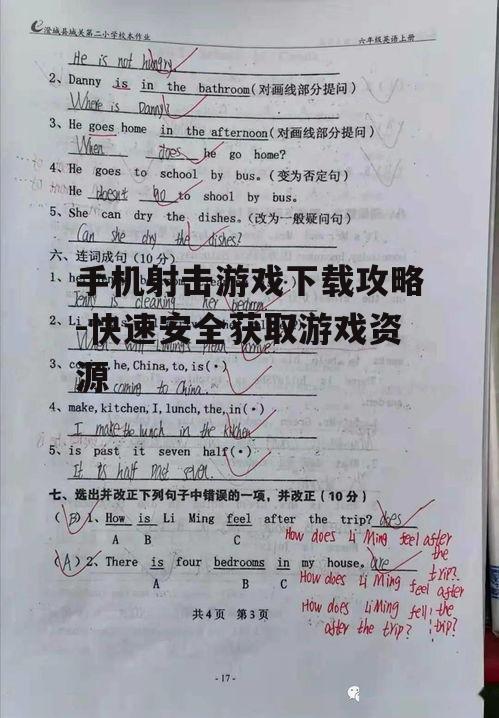 澄城县城关第二小学校本作业 六年级英语上册
He is not hungry
2、Danny is in the bathroom(对画线部分提问)
Where is Danny?
3、He goes home in the afternoon(对画线部分提问)
When does he go home?
4、He goes to school by bus.(变为否定句)
He doesn't go to shool by bus.
5、She can dry the dishes.(改为一般疑问句)
Can she dry the dishes?
六、连词成句(10分)
手机射击游戏下载攻略
-快速安全获取游戏资
源
1、her
Jenny is cleaning her bedroom
2、Li
he,China,to,is(•)
coming to China.
4、make,kitchen,I,lunch,the,in(•)
I make the lunch in the kitchen
5、is past it seven half(•)
It is half past seven.
七、选出并改正下列句子中错误的一项,并改正(10分)
(B)1、How is Li Ming feel after the trip? does
A B C
How does Li Ming feel after the trip?
(A)2、There is four bedrooms in my house. are
A B C
How does Li Ming feel after the trip?
How does Li Ming fell after the trip?
共4页 第3页
-17-